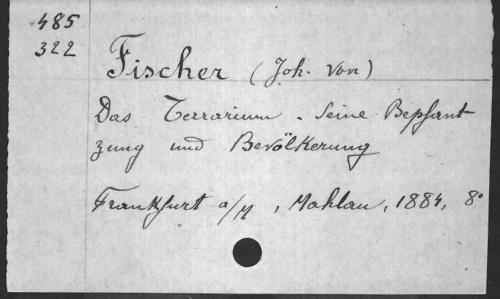 485
322
Fischer (Joh. von)
Das Terrarium. Seine Bepflant
zung und Bevölkerung
Frankfurt a/M, Mahlau, 1884, 8°